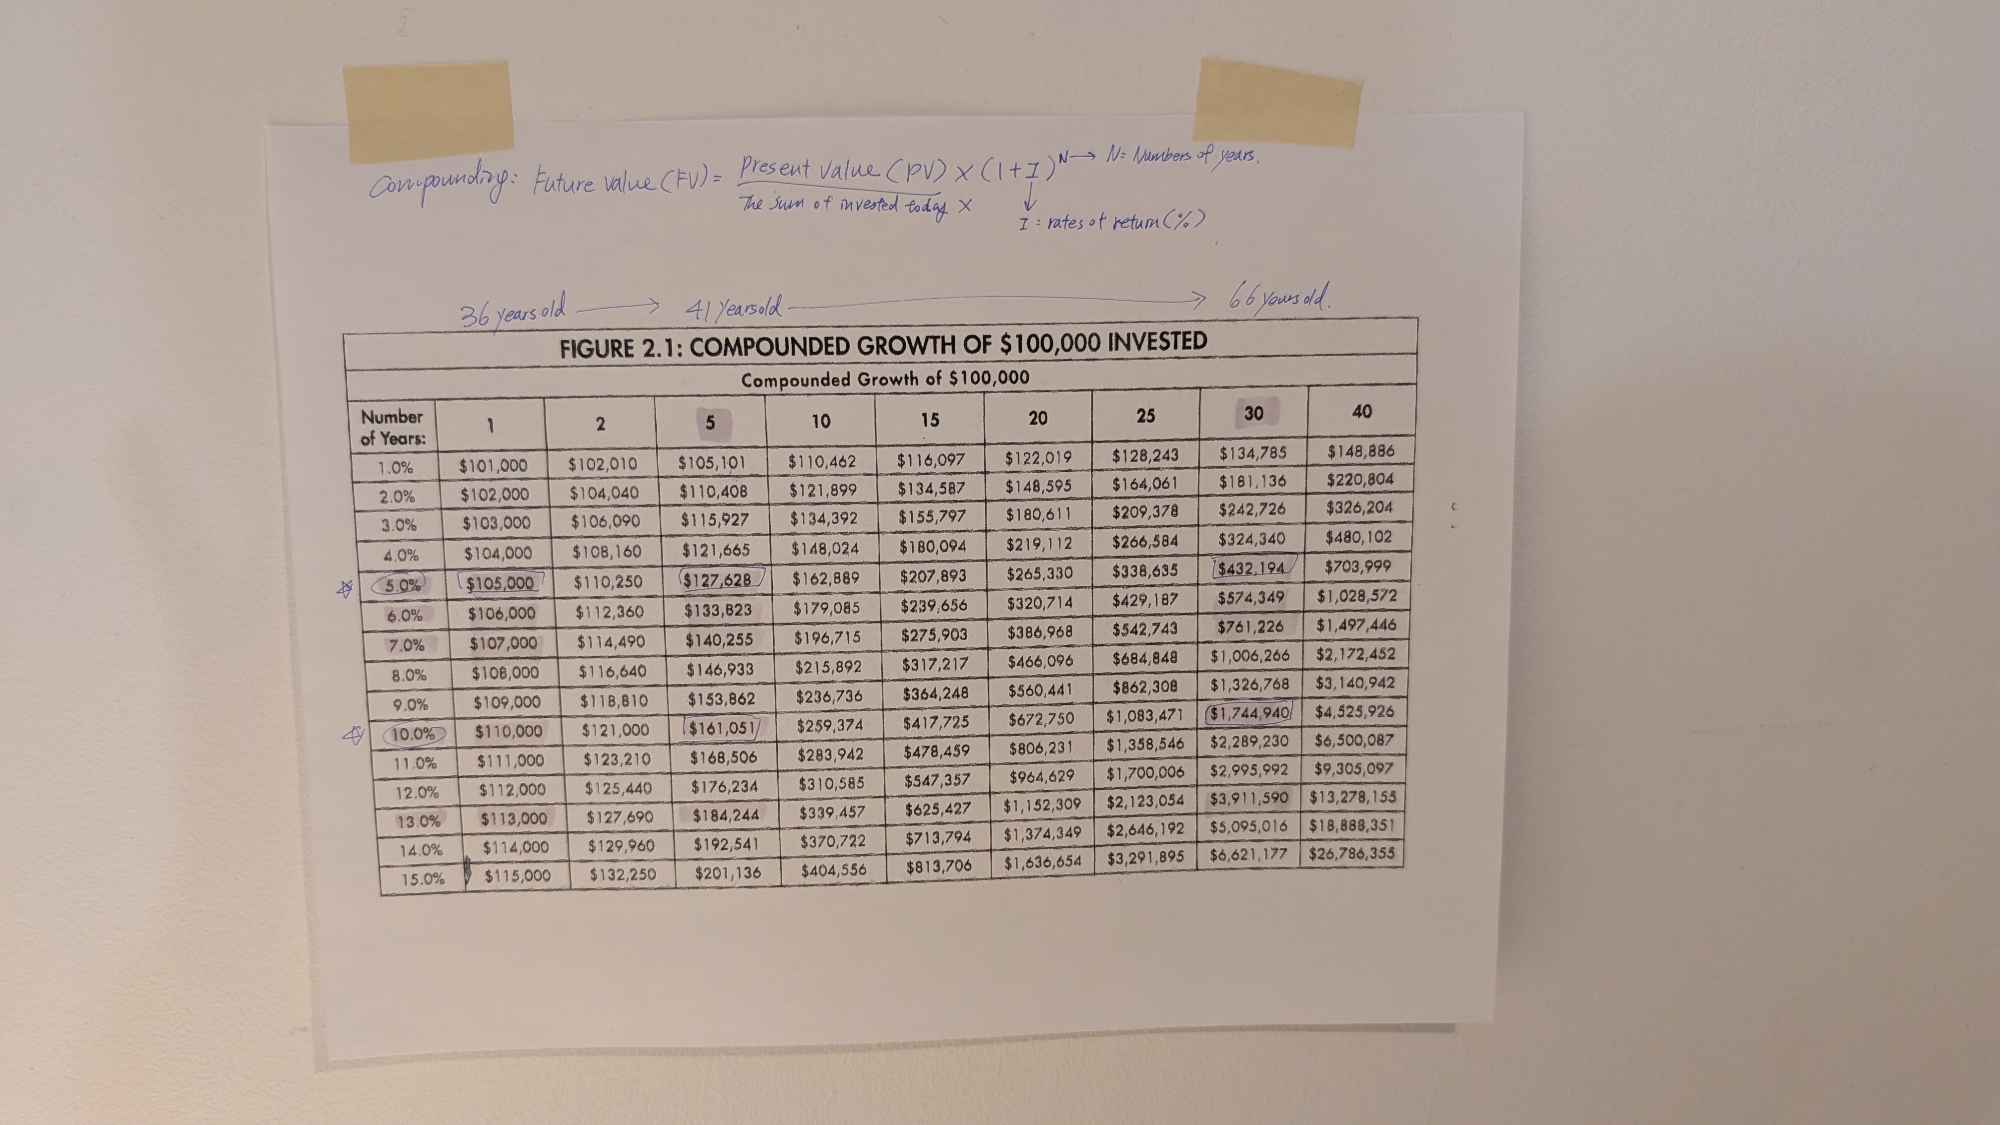 Compounding: Future value (FV) = Present value (PV) × (1+I)^N → N: Numbers of years.
The sum of invested today ×
I : rates of return (%)
36 years old → 41 years old → 66 years old.
FIGURE 2.1: COMPOUNDED GROWTH OF $100,000 INVESTED
Compounded Growth of $100,000
Number of Years: 1 2 5 10 15 20 25 30 40
1.0% $101,000 $102,010 $105,101 $110,462 $116,097 $122,019 $128,243 $134,785 $148,886
2.0% $102,000 $104,040 $110,408 $121,899 $134,587 $148,595 $164,061 $181,136 $220,804
3.0% $103,000 $106,090 $115,927 $134,392 $155,797 $180,611 $209,378 $242,726 $326,204
4.0% $104,000 $108,160 $121,665 $148,024 $180,094 $219,112 $266,584 $324,340 $480,102
5.0% $105,000 $110,250 $127,628 $162,889 $207,893 $265,330 $338,635 $432,194 $703,999
6.0% $106,000 $112,360 $133,823 $179,085 $239,656 $320,714 $429,187 $574,349 $1,028,572
7.0% $107,000 $114,490 $140,255 $196,715 $275,903 $386,968 $542,743 $761,226 $1,497,446
8.0% $108,000 $116,640 $146,933 $215,892 $317,217 $466,096 $684,848 $1,006,266 $2,172,452
9.0% $109,000 $118,810 $153,862 $236,736 $364,248 $560,441 $862,308 $1,326,768 $3,140,942
10.0% $110,000 $121,000 $161,051 $259,374 $417,725 $672,750 $1,083,471 $1,744,940 $4,525,926
11.0% $111,000 $123,210 $168,506 $283,942 $478,459 $806,231 $1,358,546 $2,289,230 $6,500,087
12.0% $112,000 $125,440 $176,234 $310,585 $547,357 $964,629 $1,700,006 $2,995,992 $9,305,097
13.0% $113,000 $127,690 $184,244 $339,457 $625,427 $1,152,309 $2,123,054 $3,911,590 $13,278,155
14.0% $114,000 $129,960 $192,541 $370,722 $713,794 $1,374,349 $2,646,192 $5,095,016 $18,888,351
15.0% $115,000 $132,250 $201,136 $404,556 $813,706 $1,636,654 $3,291,895 $6,621,177 $26,786,355